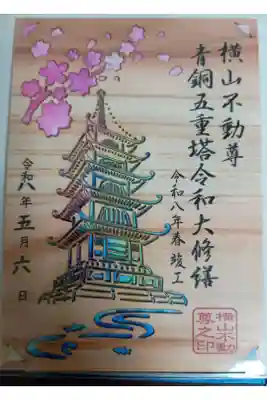 横山不動尊
青銅五重塔令和大修繕
令和八年春竣工
令和八年五月六日
横山不動
尊之印